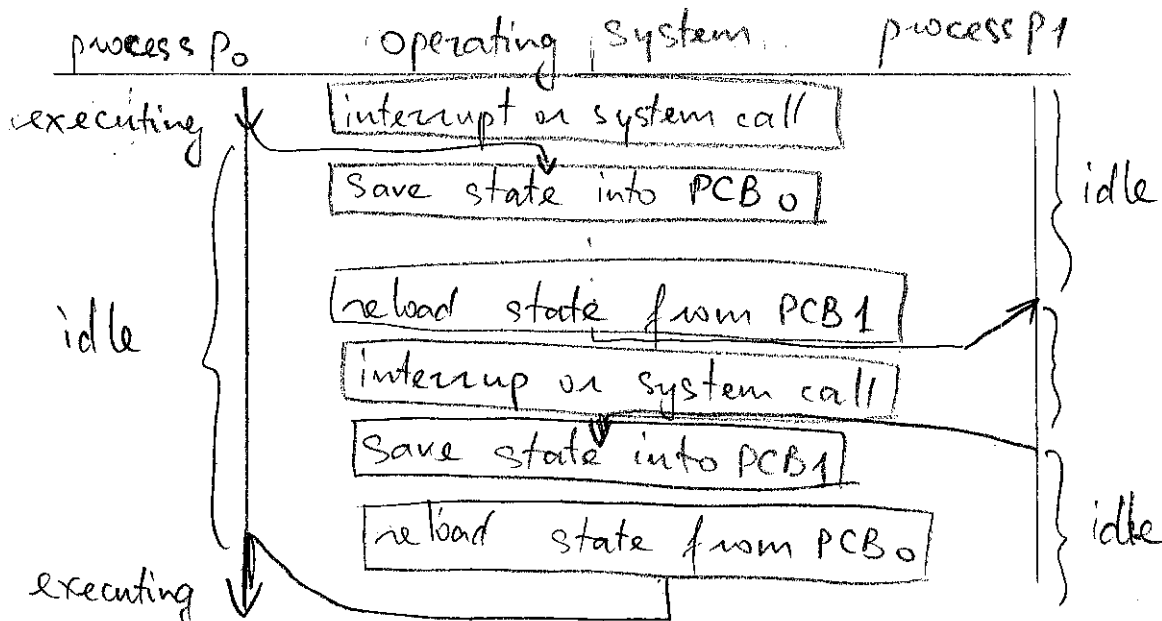 process P0 operating system process P1
executing
interrupt or system call
save state into PCB0
idle
reload state from PCB1
idle
interrup or system call
save state into PCB1
reload state from PCB0
idle
executing